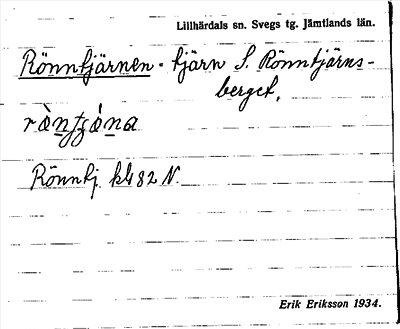 Lillhärdals sn. Svegs tg. Jämtlands län.
Rönntjärnen - tjärn S. Rönntjärns-
berget.
Rönntj kbl 82 N.
Erik Eriksson 1934.